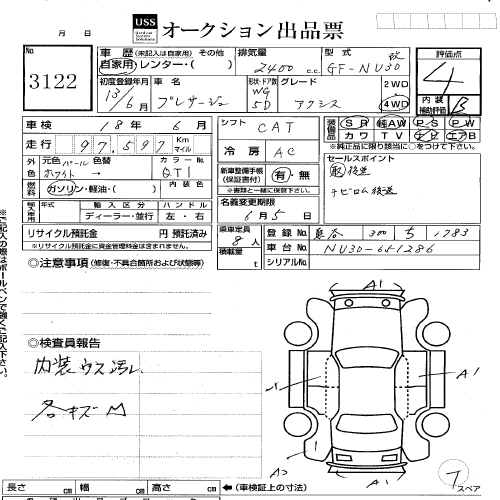 USS オークション出品票
月 日
No 3122
車歴 (未記入は自家用) その他
自家用 レンター・( )
排気量 2400 c.c.
型式 GF-NU30 改
評価点 4
内装補助評価 B
初度登録年月 13/6
車名 プレサージュ
形状・ドア数 WG 5D
グレード アクシス
2WD
4WD
車検 18年 6月
走行 97,597 Km マイル
シフト CAT
冷房 AC
装備品 SR AW PS PW
カワ TV ナビ エアB
※純正品に限り該当に○をつけて下さい。
外色 元色 パール 色替
ホワイト →
カラーNo. QT1
燃料 ガソリン・軽油・( )
内装色
輸入車用 年式 輸入区分 ハンドル
ディーラー・並行 左・右
新車整備手帳(保証書付) 有・無
※書類と一緒に保管下さい。
セールスポイント
取後送
ナビロム後送
名義変更期限 6月5日
リサイクル預託金 円 預託済み
※リサイクル預託金に資金管理料金は含まれません。
乗車定員 8人
積載量 t
登録No. 300 ち 1283
車台No. NU30-
シリアルNo.
○注意事項 (修復・不具合箇所および状態等)
○検査員報告
内装ウス汚レ
各キズ
A1
A1
A1
スペア
長さ cm 幅 cm 高さ cm ←(車検証上の寸法)
※ご記入の際はボールペンで強くご記入下さい。